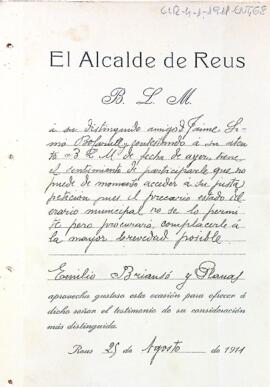 El Alcalde de Reus
B. L. M.
á su distinguido amigo D. Jaime Si-
mó Bofarull y contestando á su aten-
to B L M de fecha de ayer, tiene
el sentimiento de participarle que no
puede de momento acceder á su justa
peticion pues el precario estado del
erario municipal no se lo permi-
te pero procurará complacerle á
la mayor brevedad posible.
Emilio Briansó y Planas
aprovecha gustoso esta ocasión para ofrecer á
dicho señor el testimonio de su consideración
más distinguida.
Reus 25 de Agosto de 1911